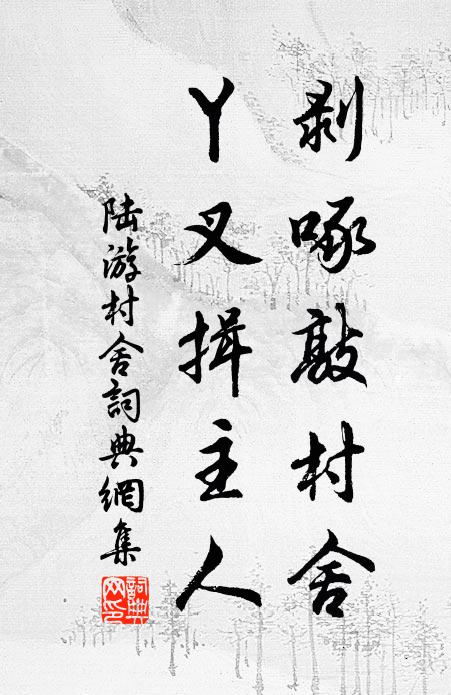 剥啄敲村舍
丫叉揖主人
陆游村舍詞典網集
詞典
网